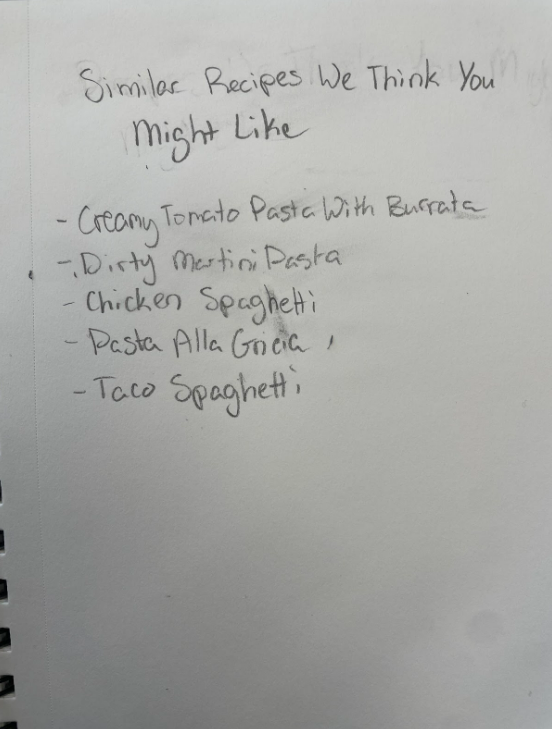 Similar Recipes We Think You
Might Like
- Creamy Tomato Pasta With Burrata
- Dirty Martini Pasta
- Chicken Spaghetti
- Pasta Alla Gricia
- Taco Spaghetti